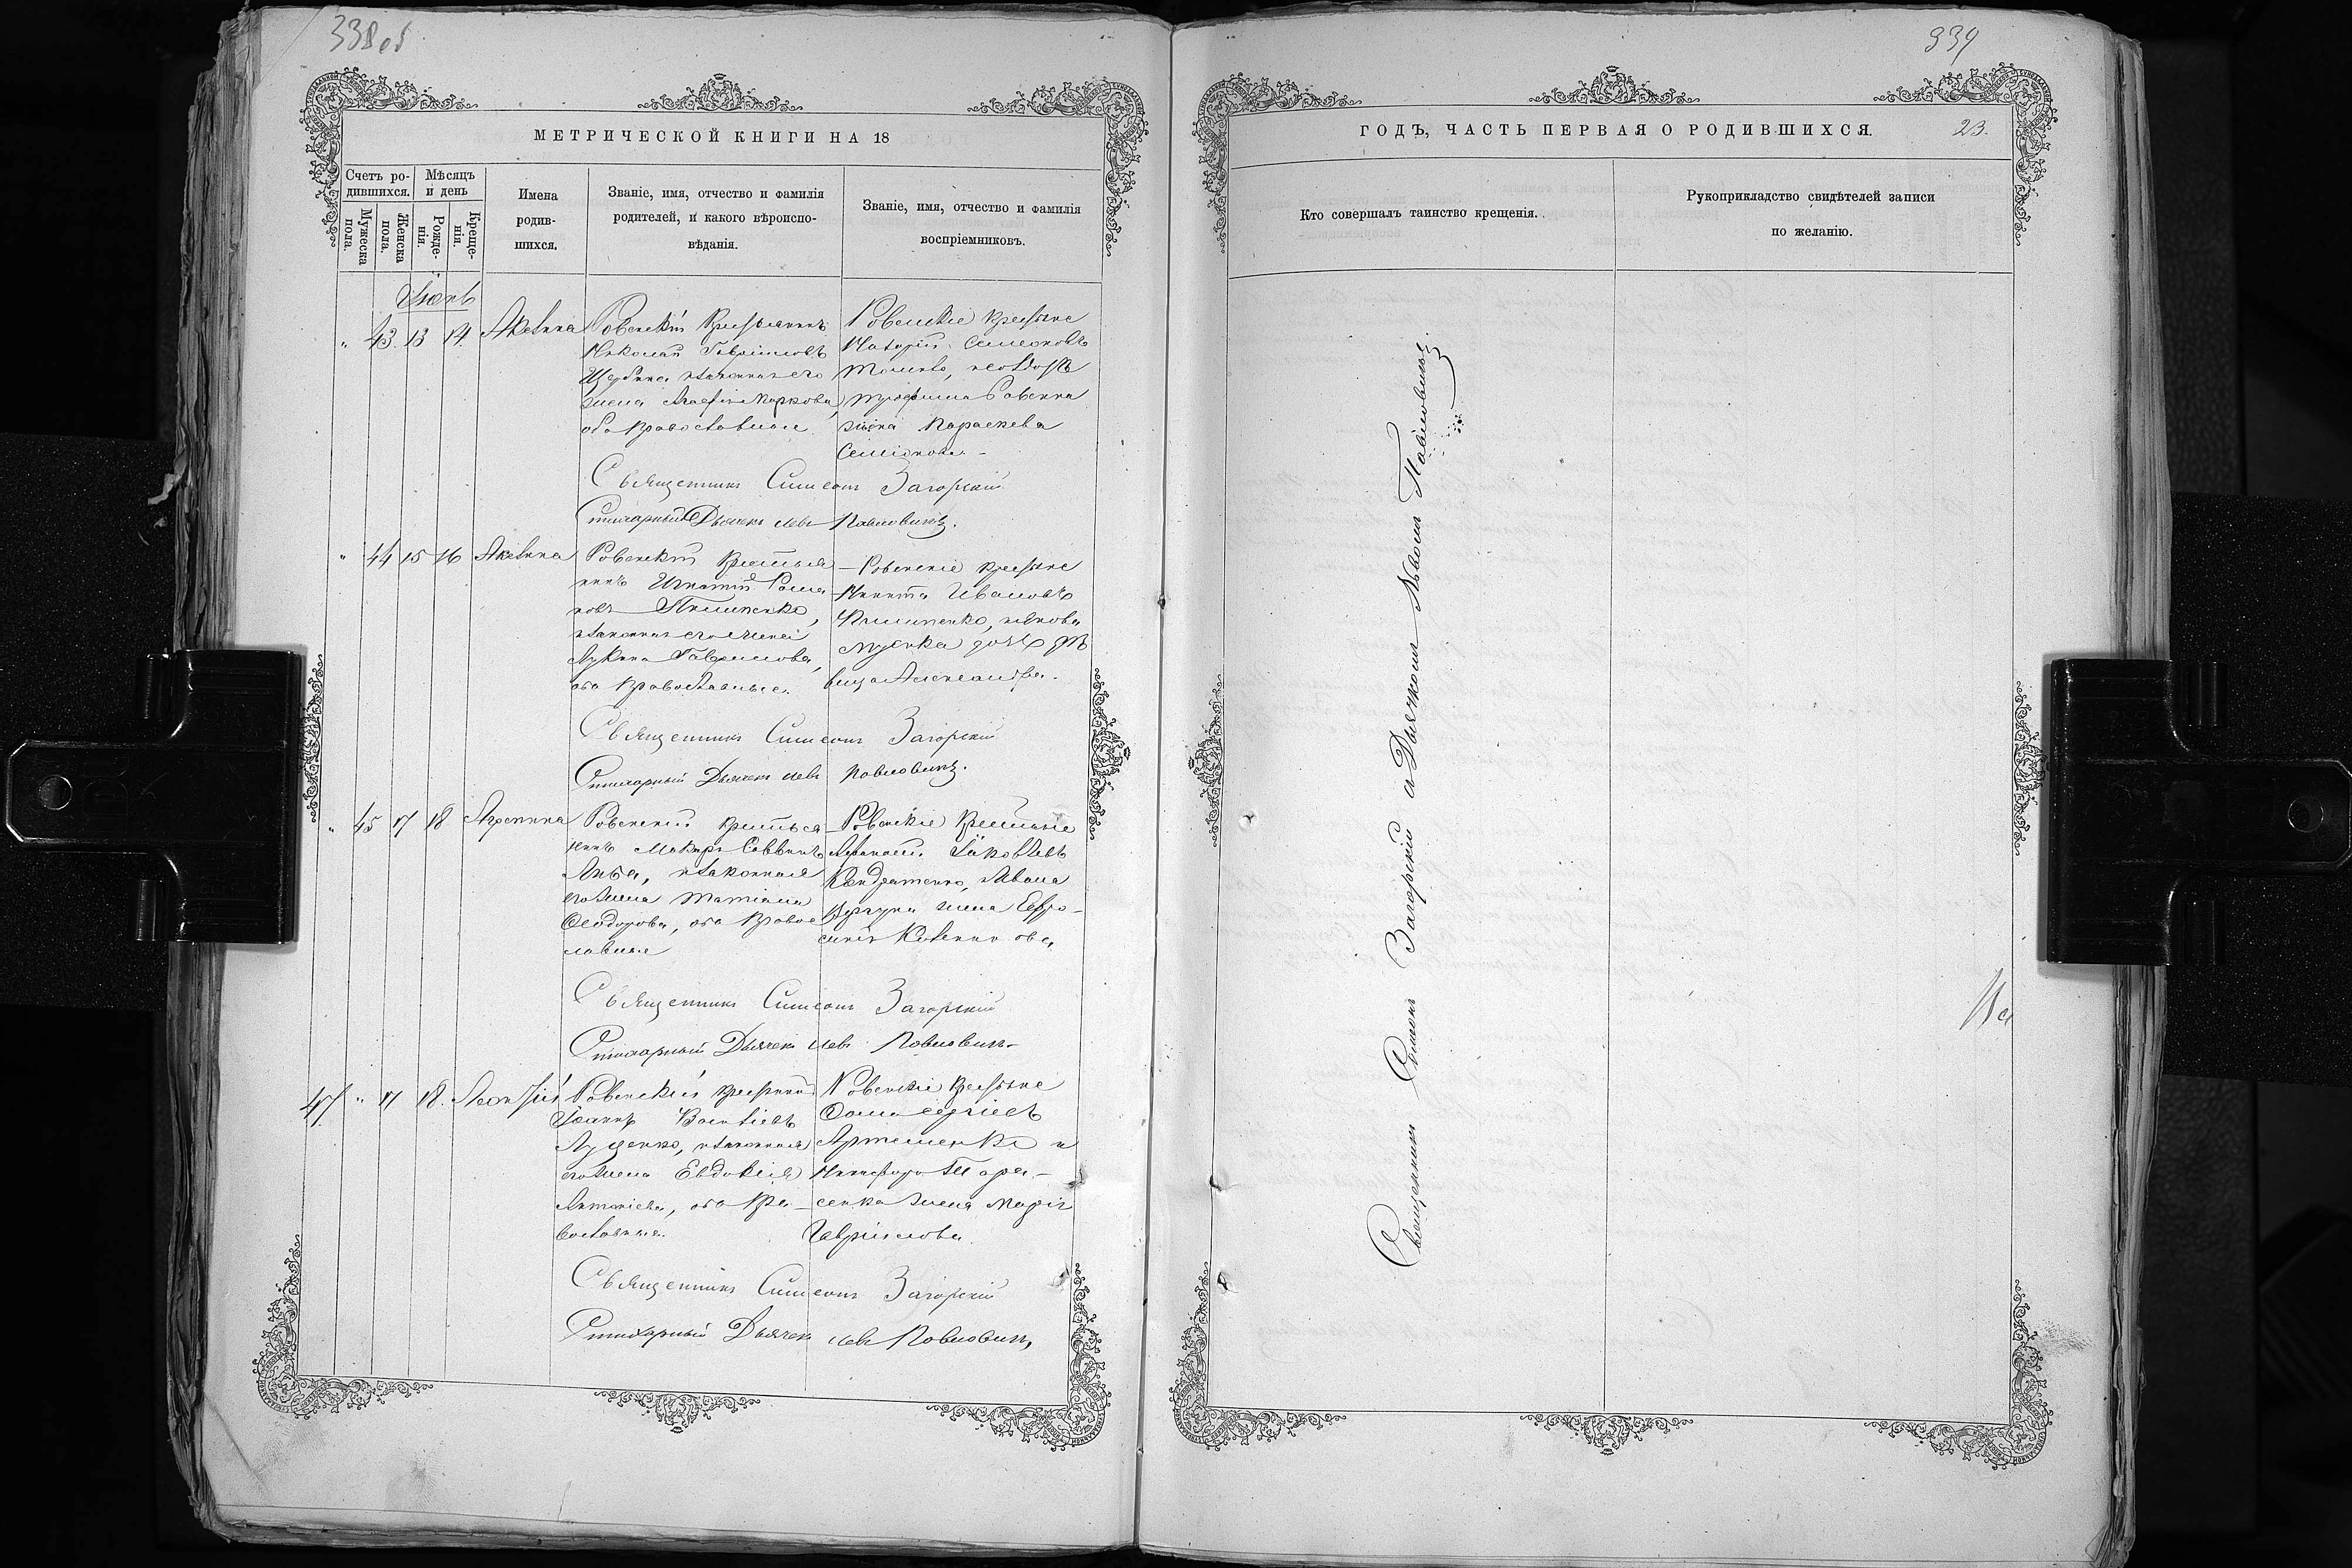 338 об
МЕТРИЧЕСКОЙ КНИГИ НА 18
Счетъ ро-
дившихся.
Мужеска
пола.
Женска
пола.
Мѣсяцъ
и день
Рожде-
нія.
Креще-
нія.
Имена
родив-
шихся.
Званіе, имя, отчество и фамилія
родителей, и какого вѣроиспо-
вѣданія.
Званіе, имя, отчество и фамилія
воспріемниковъ.
Іюнь
" 43. 13 14. Акилина
Ровенскій Крестьянинъ
Николай Гавріиловъ
Щербина изаконная его
жена Агафія Маркова,
оба православные
Ровенскіе крестьяне
Семеоновъ
Трофима
жена Параскева
Семіонова
Священникъ Симеонъ Загорскій
Стихарный Дьячекъ Левъ Павловичъ.
" 44 15 16 Акилина
Ровенскій Крестьяни
нинъ Игнатій Рома
новъ Пилипенко,
изаконная его жена
Лукина Гаврилова,
оба православные.
Ровенскіе крестьяне
Никита Ивановъ
Филипенко, иЯкова
дочь дѣ
вица Александра.
Священникъ Симеонъ Загорскій
Стихарный Дьячекъ Левъ Павловичъ.
" 45 17 18 Агрепина
Ровенскій крестья
нинъ Макаръ Саввинъ
изаконная
его жена Татіана
Ѳеодорова, оба Правос
лавные
Ровенскіе Крестьяне
Афанасій Іаковлевъ
Кондратенко, иИвана
жена Евфро-
синія
Священникъ Симеонъ Загорскій
Стихарный Дьячекъ Левъ Павловичъ
47 " 17 18. Леонтій
Ровенскій крестьянинъ
Іоаннъ Васильевъ
Луценко, изаконная
его жена Евдокія
Антоніева, оба Пра-
вославные.
Ровенскіе крестьяне
Ѳома Сергіевъ
Артеменко и
Никифора Тара-
сенка жена Марія
Гавріилова.
Священникъ Симеонъ Загорскій
Стихарный Дьячекъ Левъ Павловичъ
339
ГОДЪ, ЧАСТЬ ПЕРВАЯ О РОДИВШИХСЯ.
23.
Кто совершалъ таинство крещенія.
Рукоприкладство свидѣтелей записи
по желанію.
Священникъ Симеонъ Загорскій съ Дьячкомъ Львомъ Павловичемъ